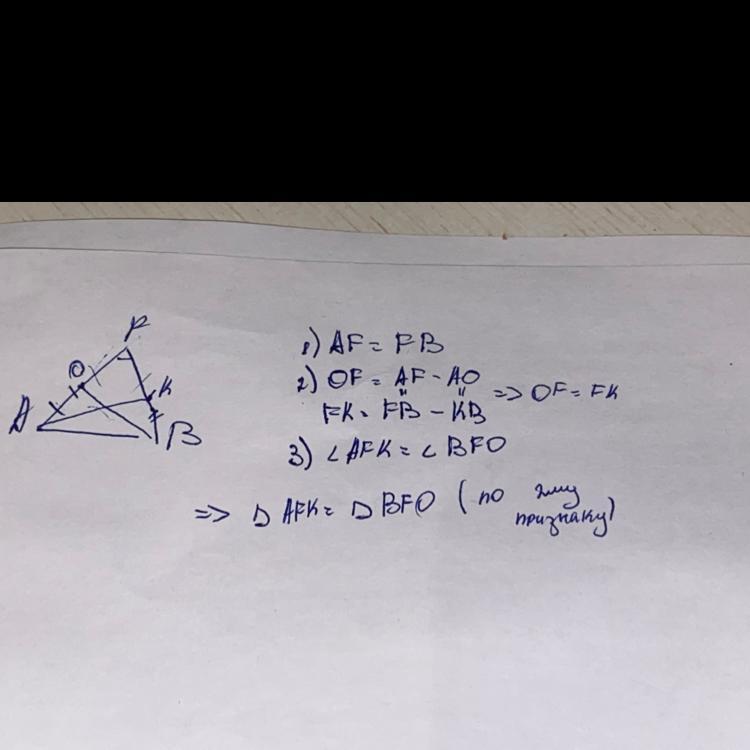 F
O
K
A
B
1) AF = FB
2) OF = AF - AO
FK = FB - KB => OF = FK
3) ∠ AFK = ∠ BFO
=> Δ AFK = Δ BFO (по
признаку)